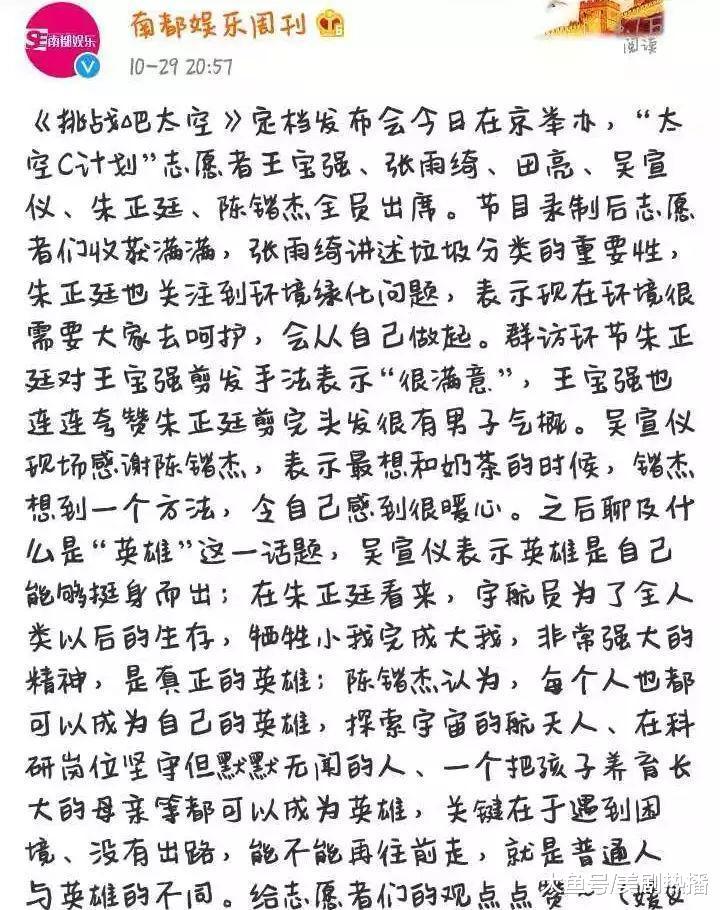 SE南都娱乐
南都娱乐周刊
10-29 20:57
阅读
《挑战吧太空》定档发布会今日在京举办，“太
空C计划”志愿者王宝强、张雨绮、田亮、吴宣
仪、朱正廷、陈锴杰全员出席。节目录制后志愿
者们收获满满，张雨绮讲述垃圾分类的重要性，
朱正廷也关注到环境绿化问题，表示现在环境很
需要大家去呵护，会从自己做起。群访环节朱正
廷对王宝强剪发手法表示“很满意”，王宝强也
连连夸赞朱正廷剪完头发很有男子气概。吴宣仪
现场感谢陈锴杰，表示最想和奶茶的时候，锴杰
想到一个方法，令自己感到很暖心。之后聊及什
么是“英雄”这一话题，吴宣仪表示英雄是自己
能够挺身而出；在朱正廷看来，宇航员为了全人
类以后的生存，牺牲小我完成大我，非常强大的
精神，是真正的英雄；陈锴杰认为，每个人也都
可以成为自己的英雄，探索宇宙的航天人、在科
研岗位坚守但默默无闻的人、一个把孩子养育长
大的母亲等都可以成为英雄，关键在于遇到困
境、没有出路，能不能再往前走，就是普通人
与英雄的不同。给志愿者们的观点点赞~（媛
大鱼号/美剧热播